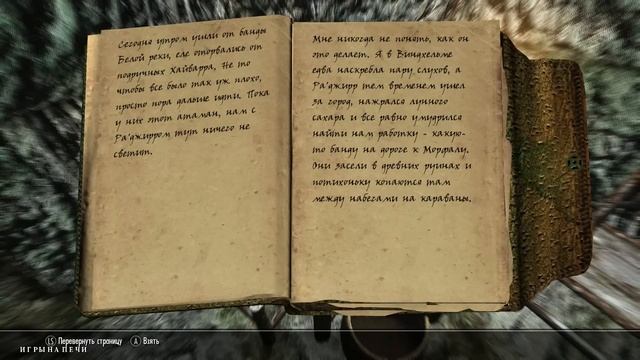 Сегодня утром ушли от банды
Белой реки, еле оторвались от
подручных Хайварра. Не то
чтобы все было так уж плохо,
просто пора дальше идти. Пока
у них этот атаман, нам с
Ра'джирром тут ничего не
светит.
Мне никогда не понять, как он
это делает. Я в Виндхельме
едва наскребла пару слухов, а
Ра'джирр тем временем ушел
за город, нажрался лунного
сахара и все равно умудрился
найти нам работку - какую-
то банду на дороге к Морфалу.
Они засели в древних руинах и
потихоньку копаются там
между набегами на караваны.
LS Перевернуть страницу A Взять
ИГРЫ НА ПЕЧИ